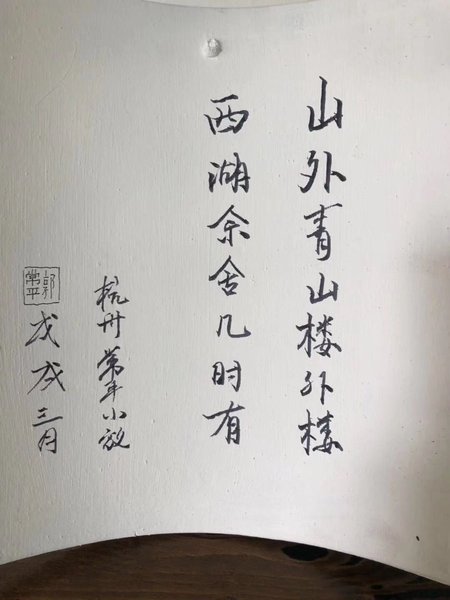 山外青山楼外楼
西湖余舍几时有
杭州常平小
郭常平
戊戌三月